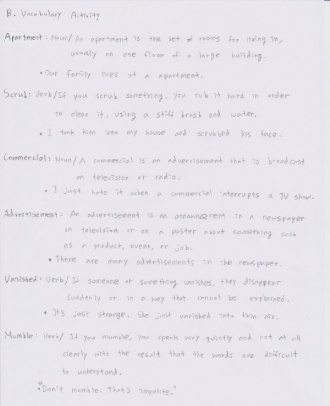 B. Vocabulary Activity
Apartment: Noun/ An apartment is the set of rooms for living in,
usually on one floor of a large building.
• Our family lives at a apartment.
Scrub: Verb/ If you scrub something, you rub it hard in order
to clean it, using a stiff brush and water.
• I took him into my house and scrubbed his face.
Commercial: Noun/ A commercial is an advertisement that is broadcast
on television or radio.
• I just hate it when a commercial interrupts a TV show.
Advertisement: An advertisement is an announcement in a newspaper
on television or on a poster about something such
as a product, event, or job.
• There are many advertisements in the newspaper.
Vanished: Verb/ If someone or something vanishes, they disappear
suddenly or in a way that cannot be explained.
• It's just strange. She just vanished into thin air.
Mumble: Verb/ If you mumble, you speak very quietly and not at all
clearly with the result that the words are difficult
to understand.
• "Don't mumble. That's impolite."